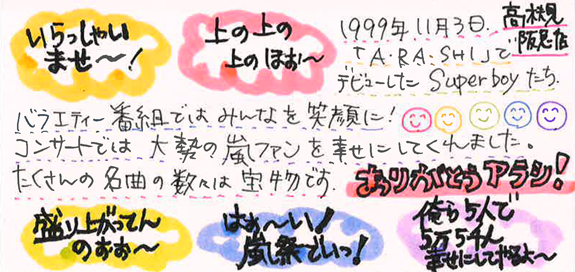 いらっしゃい
ませ〜!
上の上の
上のほぉ〜
1999年11月3日.
「A・RA・SHI」で
デビューした Super boy たち.
高槻
阪急店
バラエティー番組ではみんなを笑顔に!
コンサートでは大勢の嵐ファンを幸せにしてくれました。
たくさんの名曲の数々は宝物です.
ありがとうアラシ!
盛り上がってん
のぉぉ〜
はぁ〜い!
嵐祭でいっ!
俺ら5人で
5万5千人
幸せにしてやるよ〜